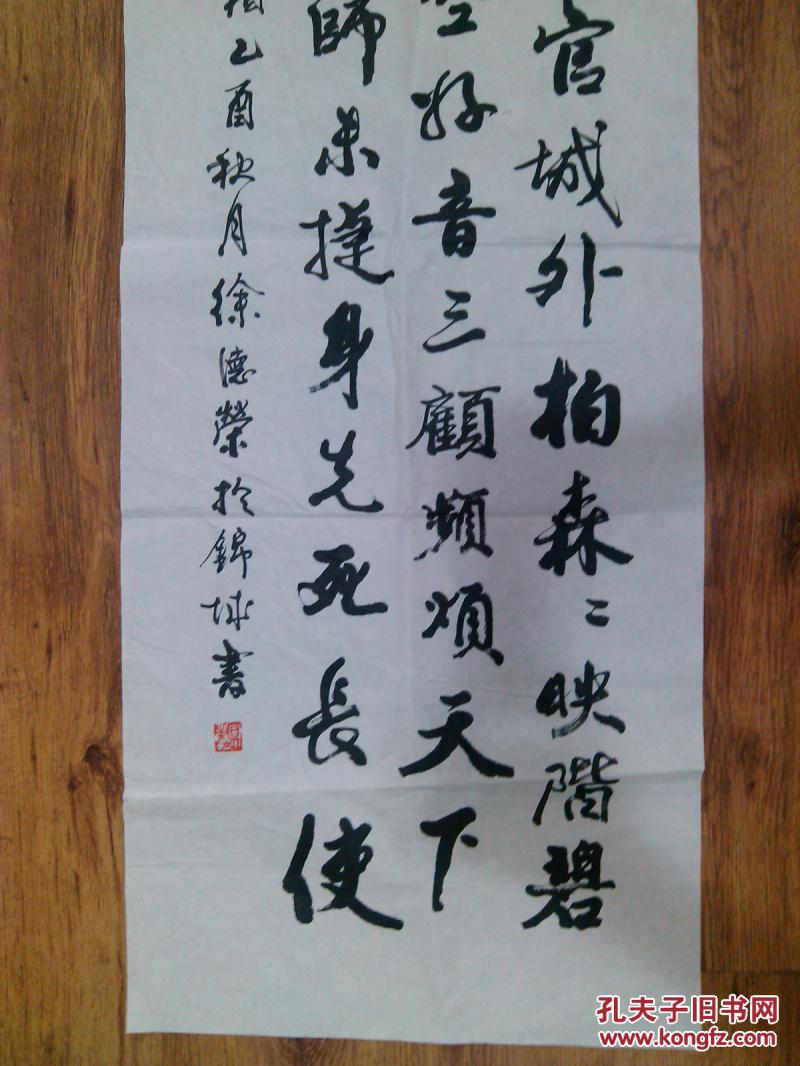 官城外柏森〻映階碧
空好音三顧頻煩天下
師未捷身先死長使
相乙酉秋月徐德榮於錦城書
孔夫子旧书网
www.kongfz.com